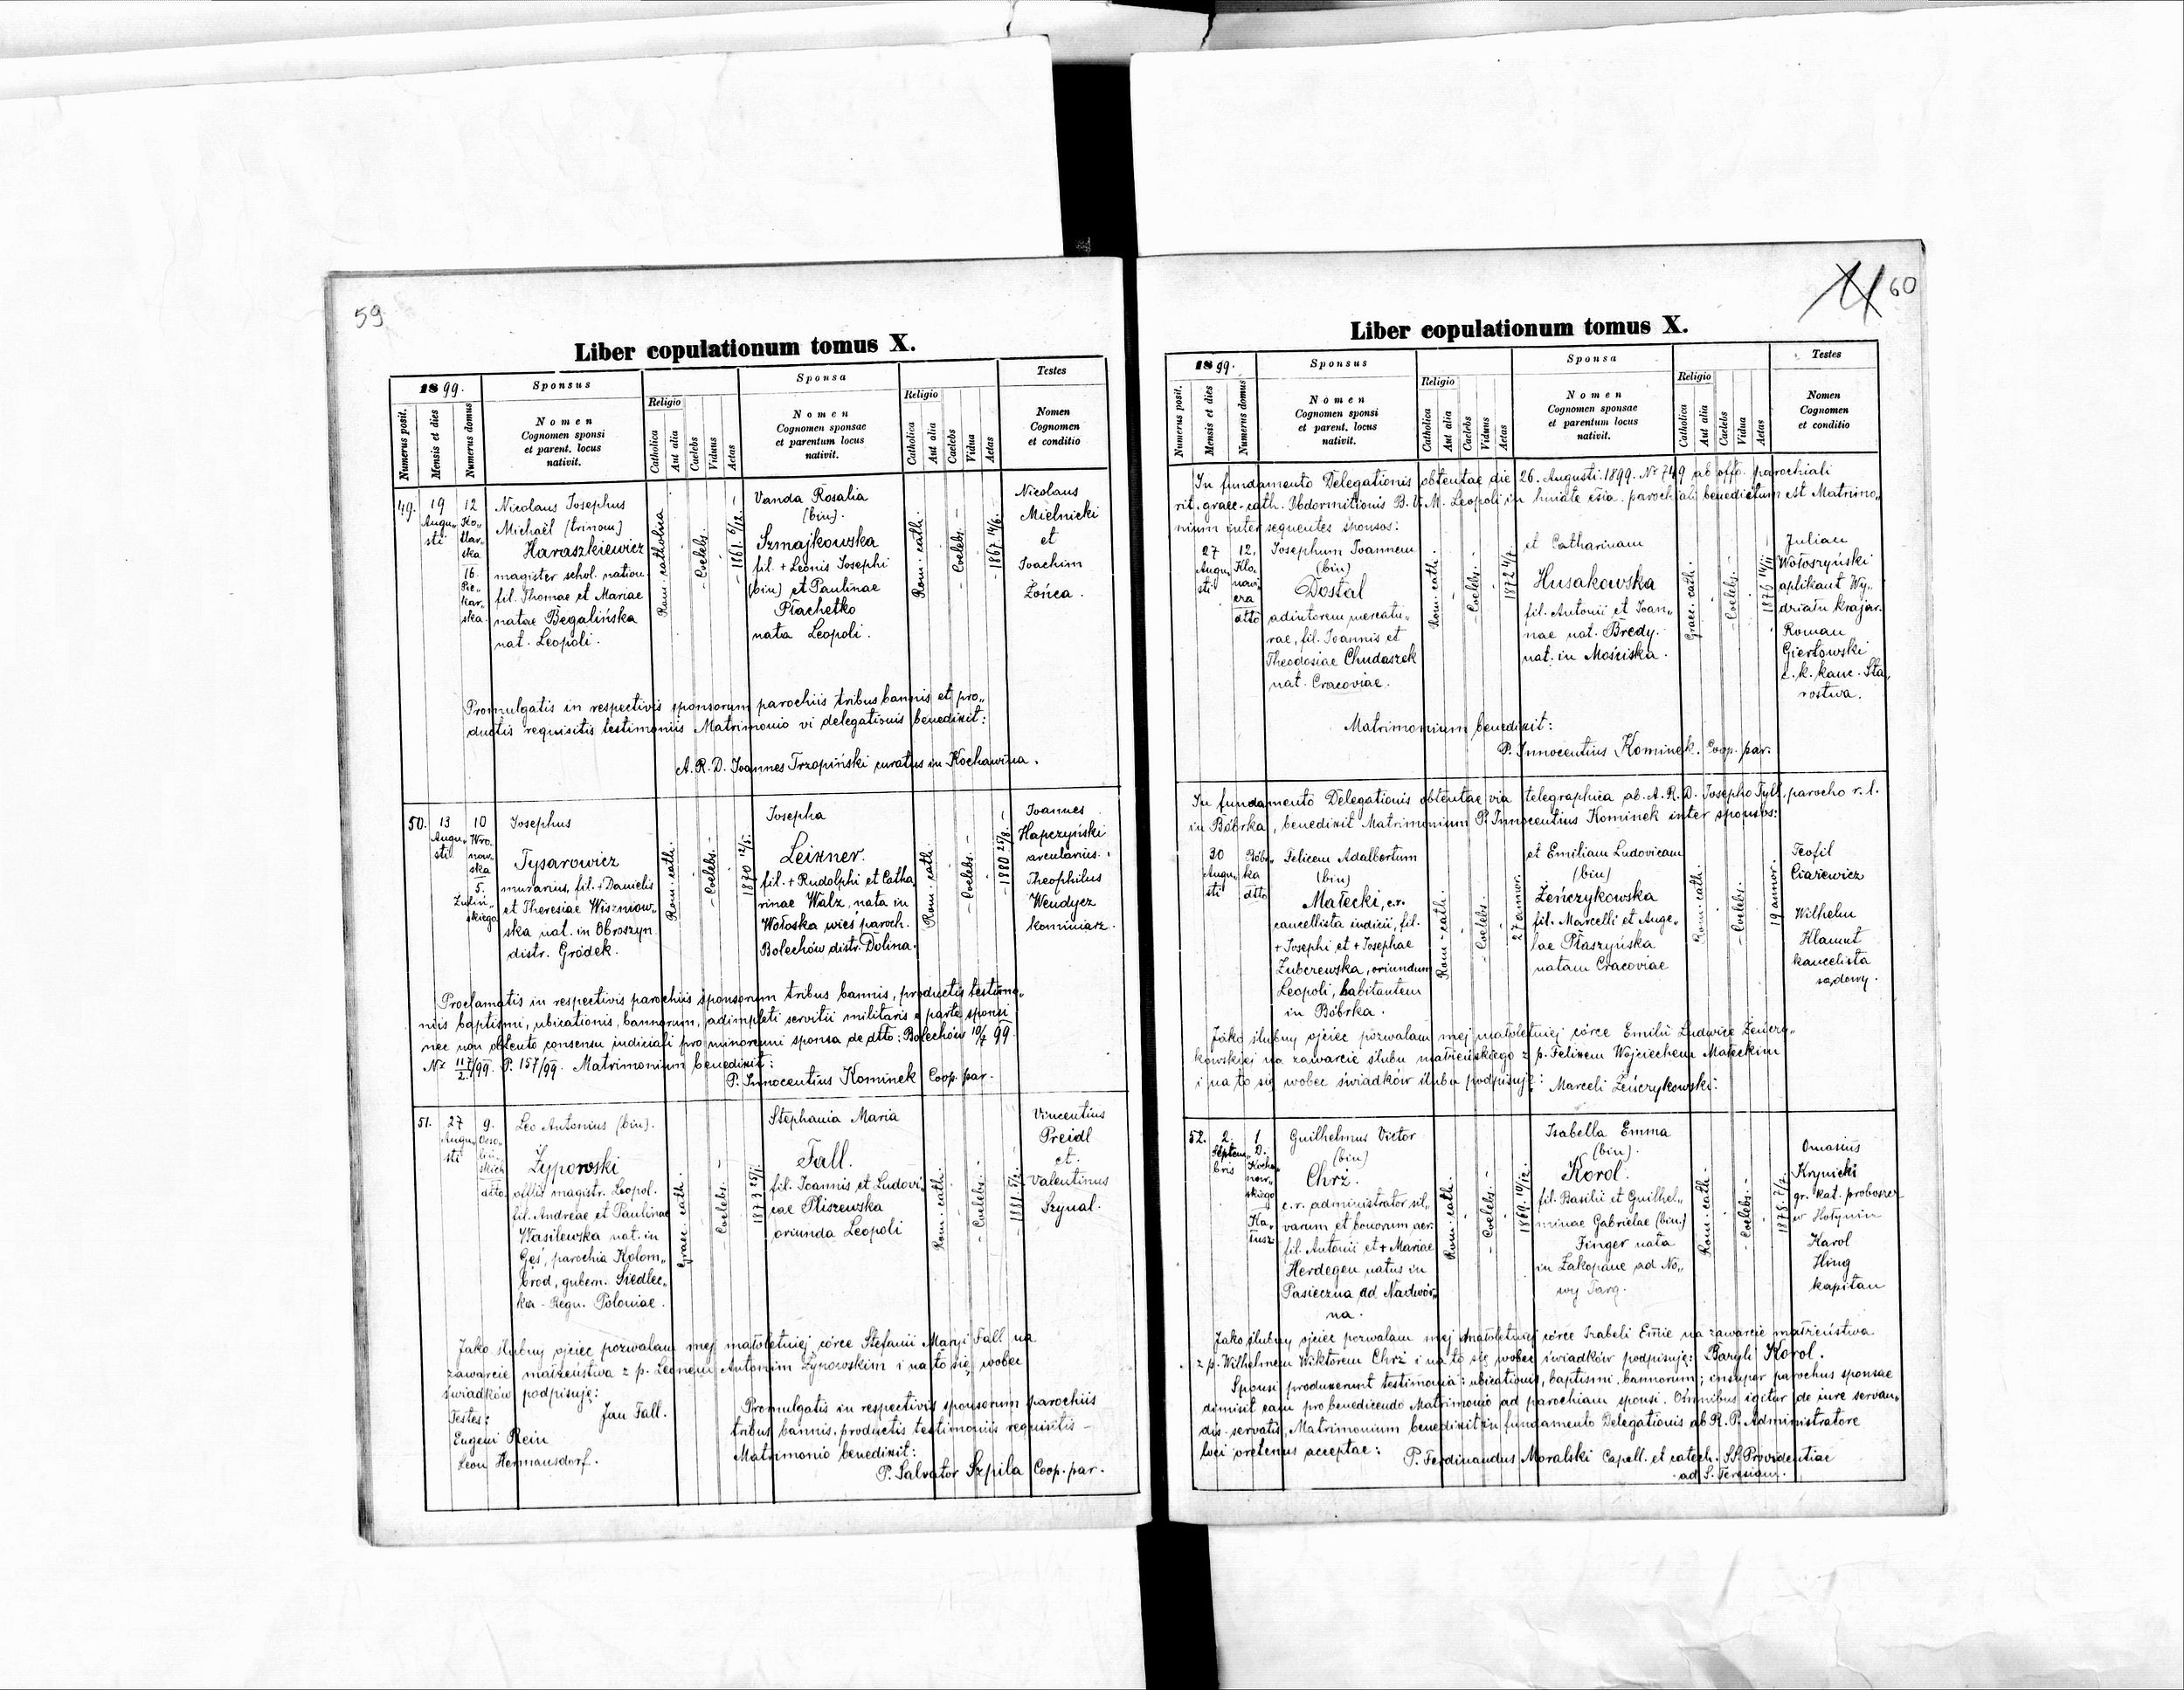 59
Liber copulationum tomus X.
1899.
Sponsus
Sponsa
Testes
Numerus posit.
Mensis et dies
Numerus domus
Nomen
Cognomen sponsi
et parent. locus
nativit.
Religio
Catholica
Aut alia
Caelebs
Viduus
Aetas
Nomen
Cognomen sponsae
et parentum locus
nativit.
Religio
Catholica
Aut alia
Caelebs
Vidua
Aetas
Nomen
Cognomen
et conditio
49.
19
Augu„
sti
12
Ko„
ska
16.
Pie„
kar„
ska
Nicolaus Josephus
Michaël (trinom)
Haraszkiewicz
magister schol. nation.
fil. Thomae et Mariae
natae Begalińska
nat. Leopoli.
Rom. catholica
- Coelebs. -
- 1861. 6/12. -
Vanda Rosalia
(bin).
Szmajkowska
fil. + Leonis Josephi
(bin) et Paulinae
Płachetko
nata Leopoli.
Rom. cath.
- Coelebs -
- 1867 14/6. -
Nicolaus
Mielnicki
et
Joachim
Żońca.
Promulgatis in respectivis sponsorum parochiis tribus bannis et pro„
ductis requisitis testimoniis Matrimonio vi delegationis benedixit:
A. R. D. Joannes Trzopiński curatus in Kochawina.
50.
13
Augu„
sti
10
Wro„
now„
ska
5.
Żulin„
skiego
Josephus
Tysarowicz
murarius, fil. + Danielis
et Theresiae Wiszniow„
ska nat. in Obroszyn
distr. Gródek.
Rom. cath.
- Coelebs. -
1870 12/5.
Josepha
Leixner.
fil. + Rudolphi et Catha„
rinae Walz, nata in
Wołoska wieś paroch.
Bolechów distr. Dolina.
Rom. cath.
- Coelebs. -
- 1880 25/8. -
Joannes
Hapczyński
arcularius.
Theophilus
Wendycz
kominiarz.
Proclamatis in respectivis parochiis sponsorum tribus bannis, productis testimo„
niis baptismi, ubicationis, bannorum, adimpleti servitii militaris e parte sponsi
nec non obtento consensu iudiciali pro minorenni sponsa de dtto: Bolechów 10/7 99
P. 157/99. Matrimonium benedixit:
P. Innocentius Kominek Coop. par.
51.
27
Augu„
sti
9.
Osso„
liń„
skich
dtto
Leo Antonius (bin).
Żypowski
offlis magistr. Leopol.
fil. Andreae et Paulinae
Wasilewska nat. in
Gęś, parochia Kolom„
brod, gubern. Siedlec„
ka - Regn. Poloniae.
Graec. cath.
- Coelebs. -
1873 25/1.
Stephania Maria
Fall.
fil. Joannis et Ludovi„
cae Pliszewska
oriunda Leopoli
Rom. cath.
- Coelebs. -
Vincentius
Preidl
et.
Valentinus
Szynal.
Jako ślubny ojciec pozwalam mej małoletniej córce Stefanii Maryi Fall na
zawarcie małżeństwa z p. Leonem Antonim Żypowskim i na to się wobec
świadków podpisuję:
Jan Fall.
Testes:
Eugeni Rein
Leon Hermansdorf.
Promulgatis in respectivis sponsorum parochiis
tribus bannis, productis testimoniis requisitis -
Matrimonio benedixit:
P. Salvator Szpila Coop. par.
60
Liber copulationum tomus X.
1899.
Sponsus
Sponsa
Testes
Numerus posit.
Mensis et dies
Numerus domus
Nomen
Cognomen sponsi
et parent. locus
nativit.
Religio
Catholica
Aut alia
Caelebs
Viduus
Aetas
Nomen
Cognomen sponsae
et parentum locus
nativit.
Religio
Catholica
Aut alia
Caelebs
Vidua
Aetas
Nomen
Cognomen
et conditio
In fundamento Delegationis obtentae die 26. Augusti. 1899. Nr 749 ab offo. parochiali
rit. graec-cath. Obdormitionis B. V. M. Leopoli in huiate ecsia. parochiali benedictum est Matrimo„
nium inter sequentes sponsos:
27
Augu„
sti
12.
Klo„
nowi„
cza
dtto
Josephum Joannem
(bin)
Dostal
adiutorem mercatu„
rae, fil. Joannis et
Theodosiae Chudaszek
nat. Cracoviae.
Rom. cath.
- Coelebs. -
1872 4/7.
et Catharinam
Husakowska
fil. Antonii et Joan„
nae nat. Bredy.
nat. in Mościska.
Graec. cath.
- Coelebs. -
Julian
Wołoszyński
aplikant Wy„
działu krajow.
Roman
Gierłowski
c. k. kanc. Sta„
rostwa.
Matrimonium benedixit:
P. Innocentius Kominek. Coop. par.
In fundamento Delegationis obtentae via telegraphica ab. A. R. D. Josepho Tyll, parocho r. l.
in Bóbrka, benedixit Matrimonium P. Innocentius Kominek inter sponsos:
30
Augu„
sti
Bób„
ka
dtto
Felicem Adalbertum
(bin)
Małecki, c.r.
cancellista iudicii, fil.
+ Josephi et + Josephae
Zubczewska, oriundum
Leopoli, habitantem
in Bóbrka.
Rom-cath.
- Coelebs. -
27 annor.
et Emiliam Ludovicam
(bin)
Żeńczykowska
fil. Marcelli et Ange„
lae Płaszyńska
natam Cracoviae
Rom-cath.
- Coelebs. -
19 annor.
Teofil
Ciażewicz
Wilhelm
Hlamut
kancelista
sądowy.
Jako ślubny ojciec pozwalam mej małoletniej córce Emilii Ludwice Żeńczy„
kowskiej na zawarcie ślubu małżeńskiego z p. Felixem Wojciechem Małeckim
i na to się wobec świadków ślubu podpisuję: Marceli Żeńczykowski.
52.
2.
Septem„
bris
1
D.
Kocha„
now„
skiego
Ka„
łusz
Guilhelmus Victor
(bin)
Chrź.
c.r. administrator sil„
varum et bonorum aer.
fil. Antonii et + Mariae
Herdegen natus in
Pasieczna ad Nadwór„
na.
Rom-cath.
- Coelebs. -
1869. 10/12.
Isabella Emma
(bin).
Korol.
fil. Basilii et Guilhel„
minae Gabrielae (bin.)
Finger nata
in Zakopane ad No„
wy Targ.
Rom-cath.
- Coelebs. -
1878. 7/7.
Onasius
Krynicki
gr. kat. proboszcz
w Hołynin
Karol
Hing
kapitan
Jako ślubny ojciec pozwalam mej małoletniej córce Izabeli Emie na zawarcie małżeństwa
z p. Wilhelmem Wiktorem Chrź i na to się wobec świadków podpisuję: Baryli Korol.
Sponsi produxerunt testimonia: ubicationis, baptismi, bannorum; insuper parochus sponsae
dimisit eam pro benedicendo Matrimonio ad parochiam sponsi. Omnibus igitur de iure servan„
dis - servatis, Matrimonium benedixit in fundamento Delegationis ab R. P. Administratore
loci oretenus acceptae: P. Ferdinandus Moralski Capell. et catech. SS. Providentiae
ad S. Teresiam.